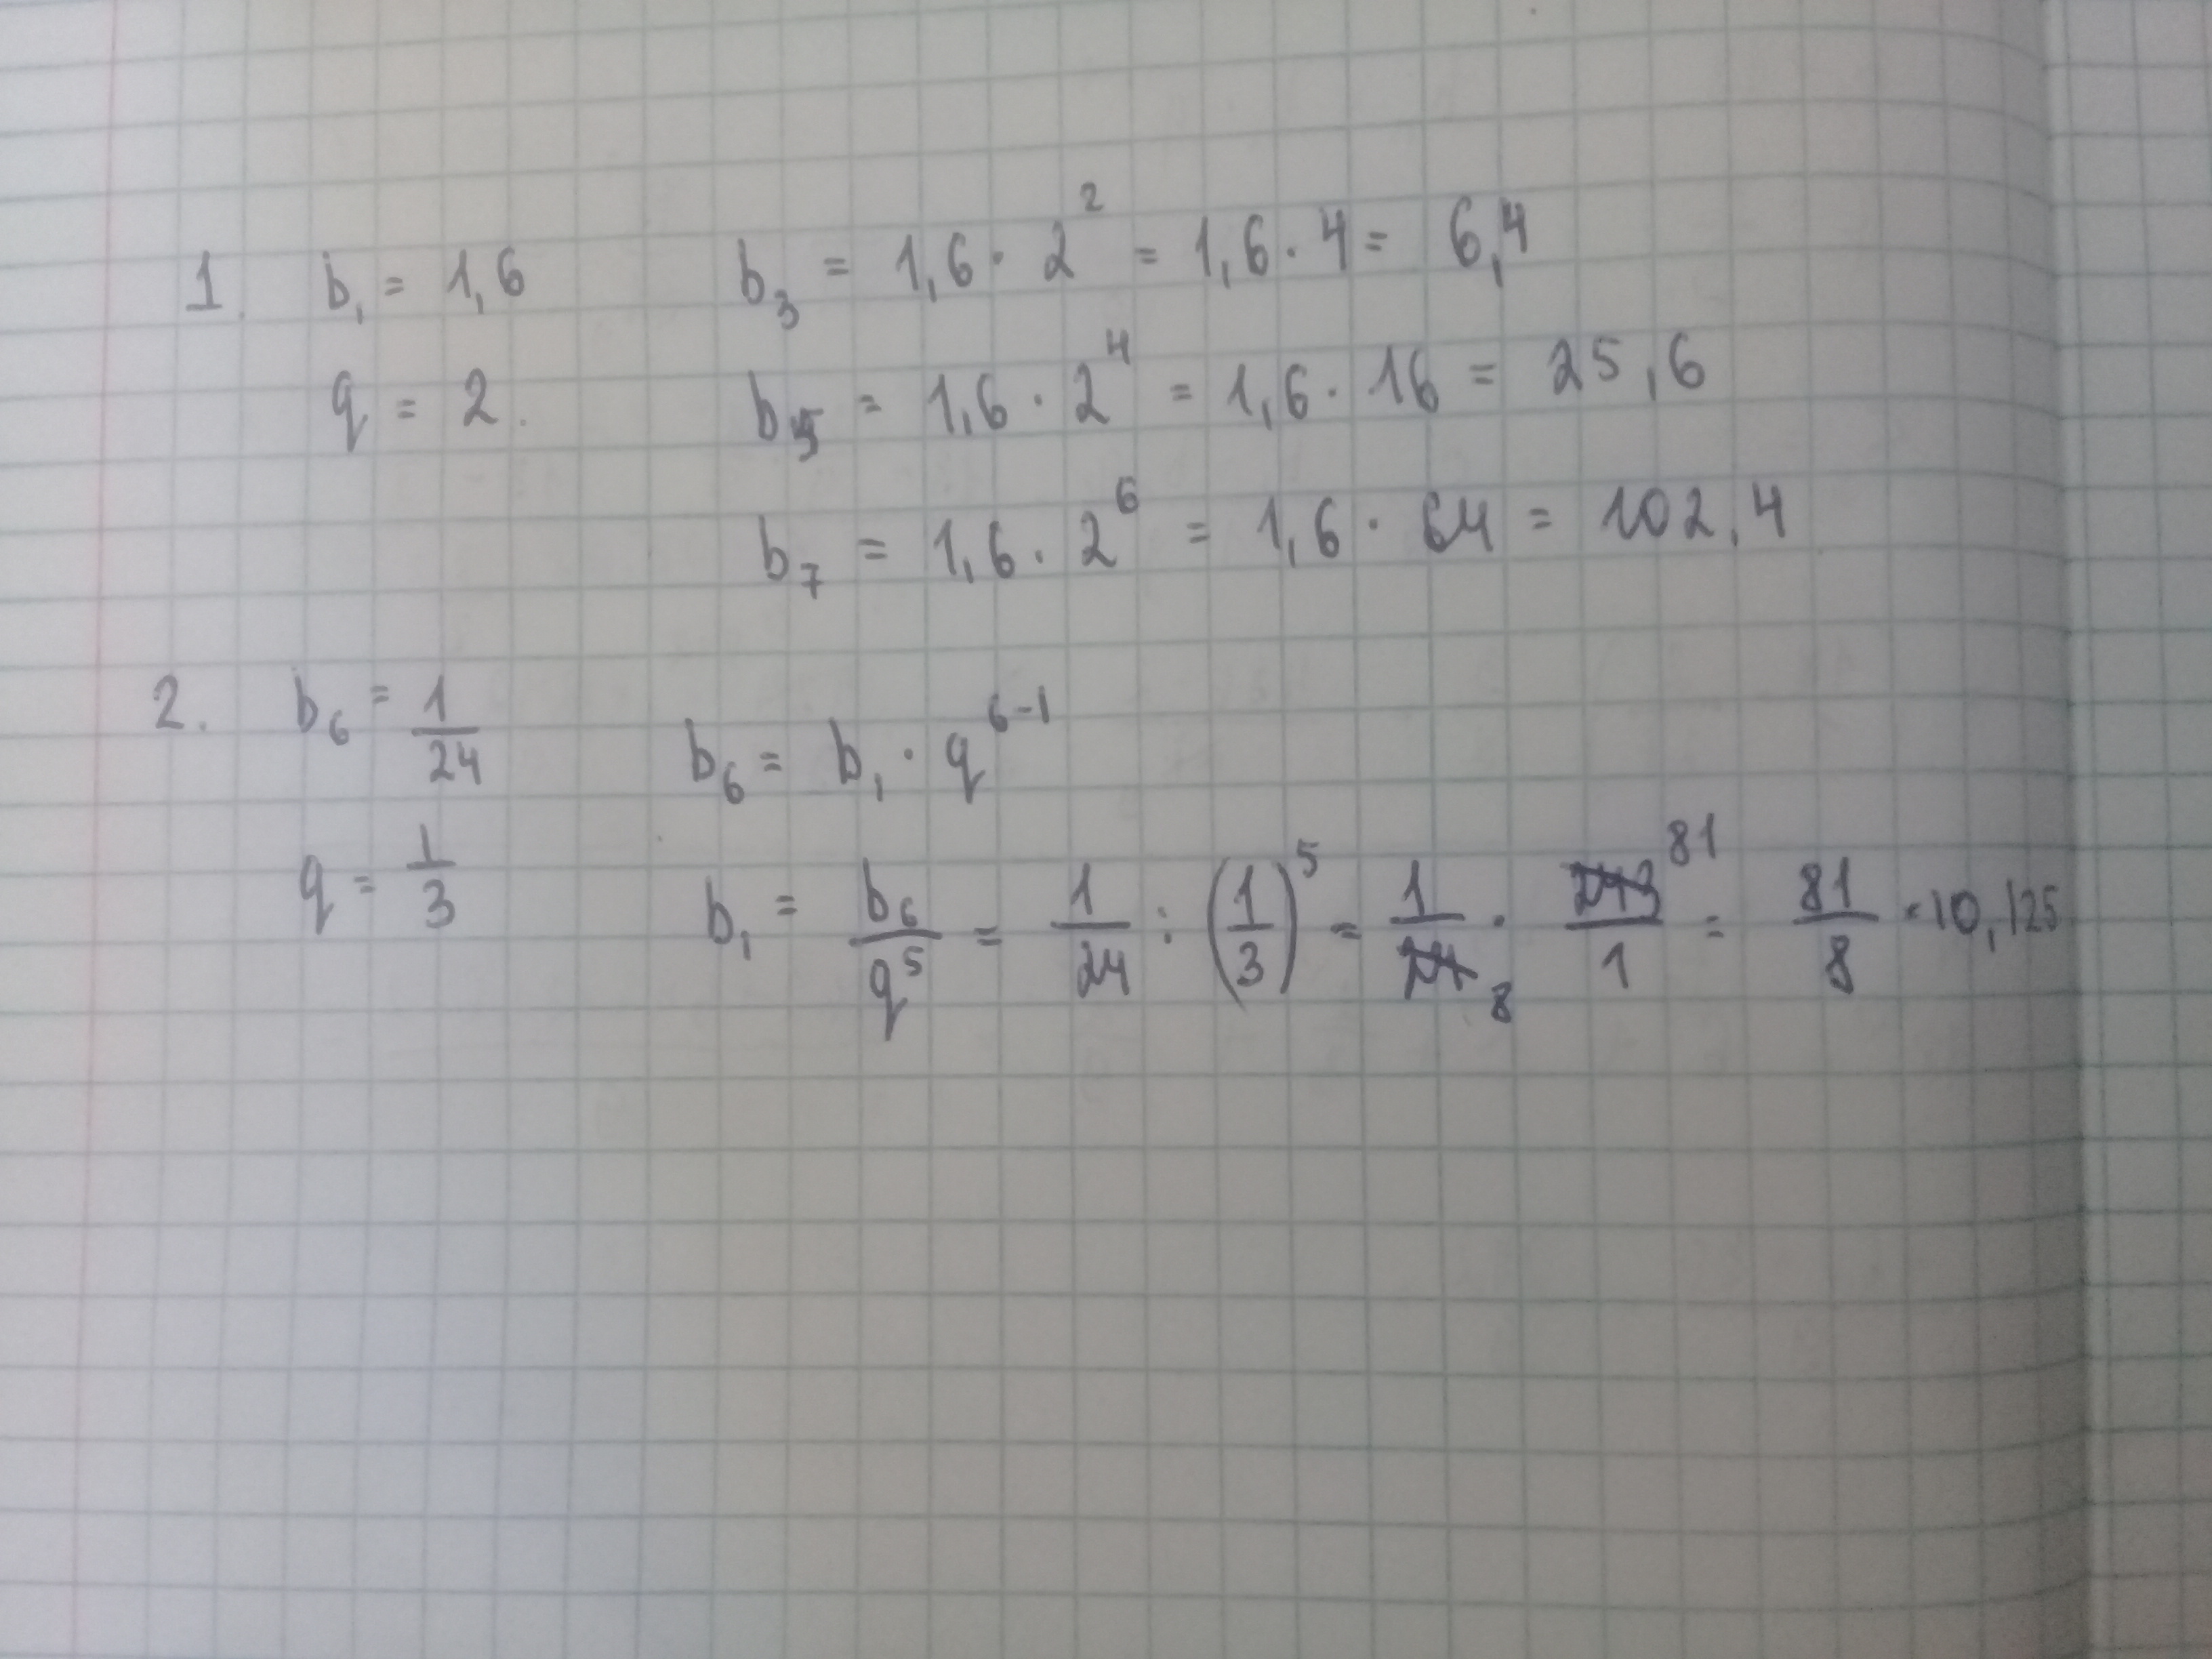 1. b₁ = 1,6 b₃ = 1,6 · 2² = 1,6 · 4 = 6,4
q = 2. b₅ = 1,6 · 2⁴ = 1,6 · 16 = 25,6
b₇ = 1,6 · 2⁶ = 1,6 · 64 = 102,4
2. b₆ = 1/24 b₆ = b₁ · q⁶⁻¹
q = 1/3 b₁ = b₆/q⁵ = 1/24 : (1/3)⁵ = 1/24 8 · 243 81/1 = 81/8 = 10,125